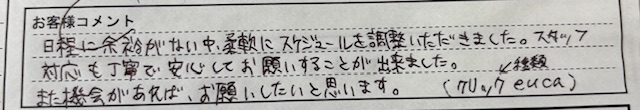 お客様コメント
日程に余裕がない中、柔軟にスケジュールを調整いただきました。スタッフ
対応も丁寧で安心してお願いすることが出来ました。
また機会があれば、お願いしたいと思います。(クリック euca)
種類